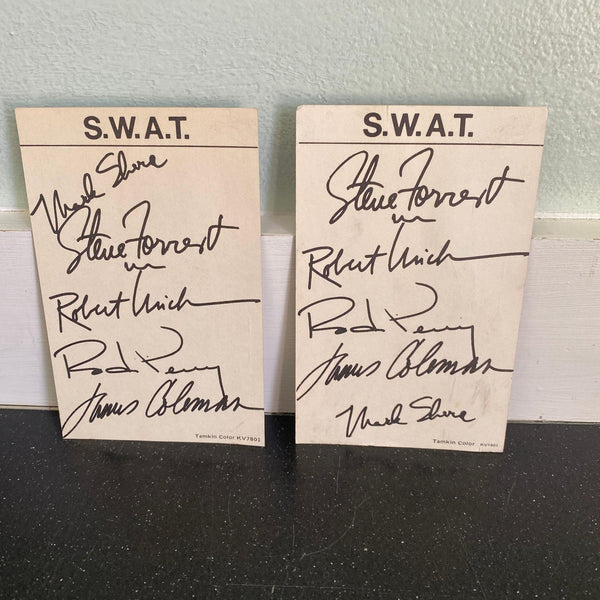 S.W.A.T.
Mark Shera
Steve Forrest
Robert Urich
Rod Perry
James Coleman
Tamkin Color KV7801
S.W.A.T.
Steve Forrest
Robert Urich
Rod Perry
James Coleman
Mark Shera
Tamkin Color KV7801